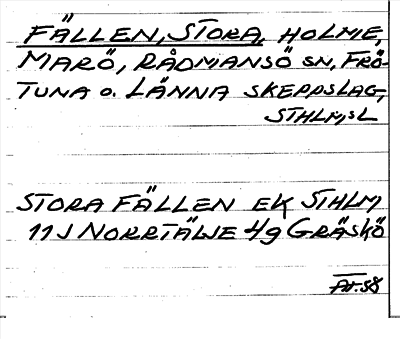 FÄLLEN, STORA, HOLME,
MARÖ, RÅDMANSÖ SN, FRÖ-
TUNA O. LÄNNA SKEPPSLAG,
STHLMS L
STORA FÄLLEN EK STHLM
11J NORRTÄLJE 4g GRÄSKÖ